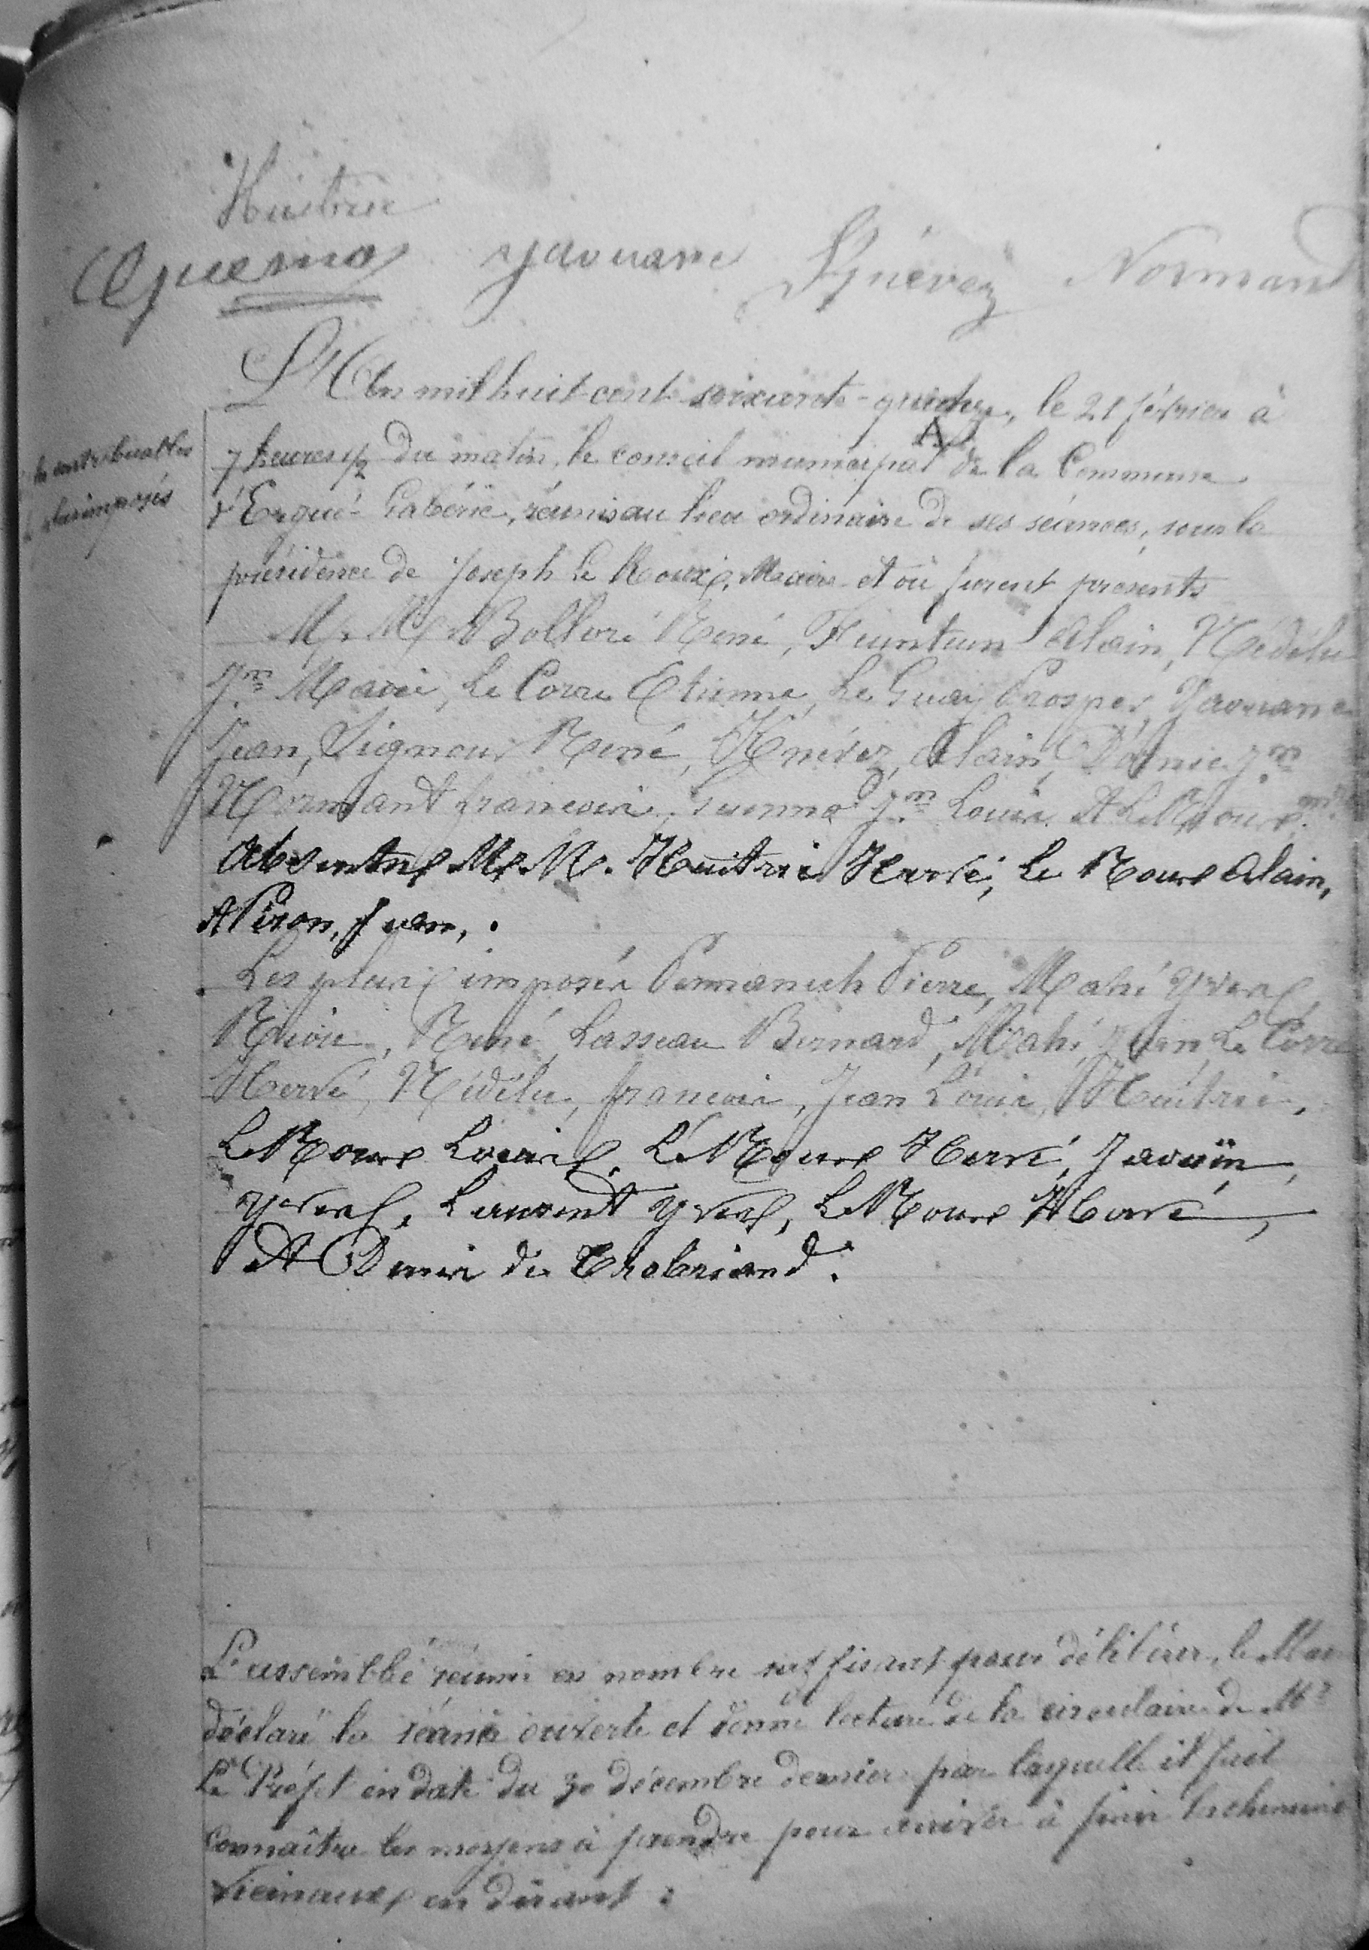 Huitric
Quéméré Yaouanc Knévez Normant
L'An mil huit cent soixante-quinze, le 21 février à
7 heures 1/2 du matin, le conseil municipal de la Commune
d'Ergué-Gabéric, réuni au lieu ordinaire de ses séances, sous la
présidence de Joseph Le Roux, Maire et où furent présents
M.M. Bolloré René, Feunteun Alain, Nédélec
Jn Marie, Le Corre Etienne, Le Guay Prosper, Yaouanc
Jean, Signour René, Knévez, Alain, Jn
Normant françois, Jn Louis, Et Le Roux
Absents M.M. Huitric Hervé, Le Roux Alain,
Et Piron, Jean,.
Les plus imposés Pennanech Pierre, Mahé Yves,
René, Lasseau Bernard, Mahé, Le Corre
Hervé, Nédélec, françois, Jean Louis, Huitric,
Le Roux Louis, Le Roux Hervé,
Yves, Laurent Yves, Le Roux Hervé,
Et Denis de Trobriand.
les contribuables
plus imposés
L'assemblé réuni en nombre suffisant pour délibérer, le Maire
déclaré la séance ouverte et donne lecture de la circulaire de Mr
Le Préfet en date du 30 décembre dernier par laquelle il fait
Connaître les moyens à prendre pour arriver à finir les chemins
Vicinaux en disant :